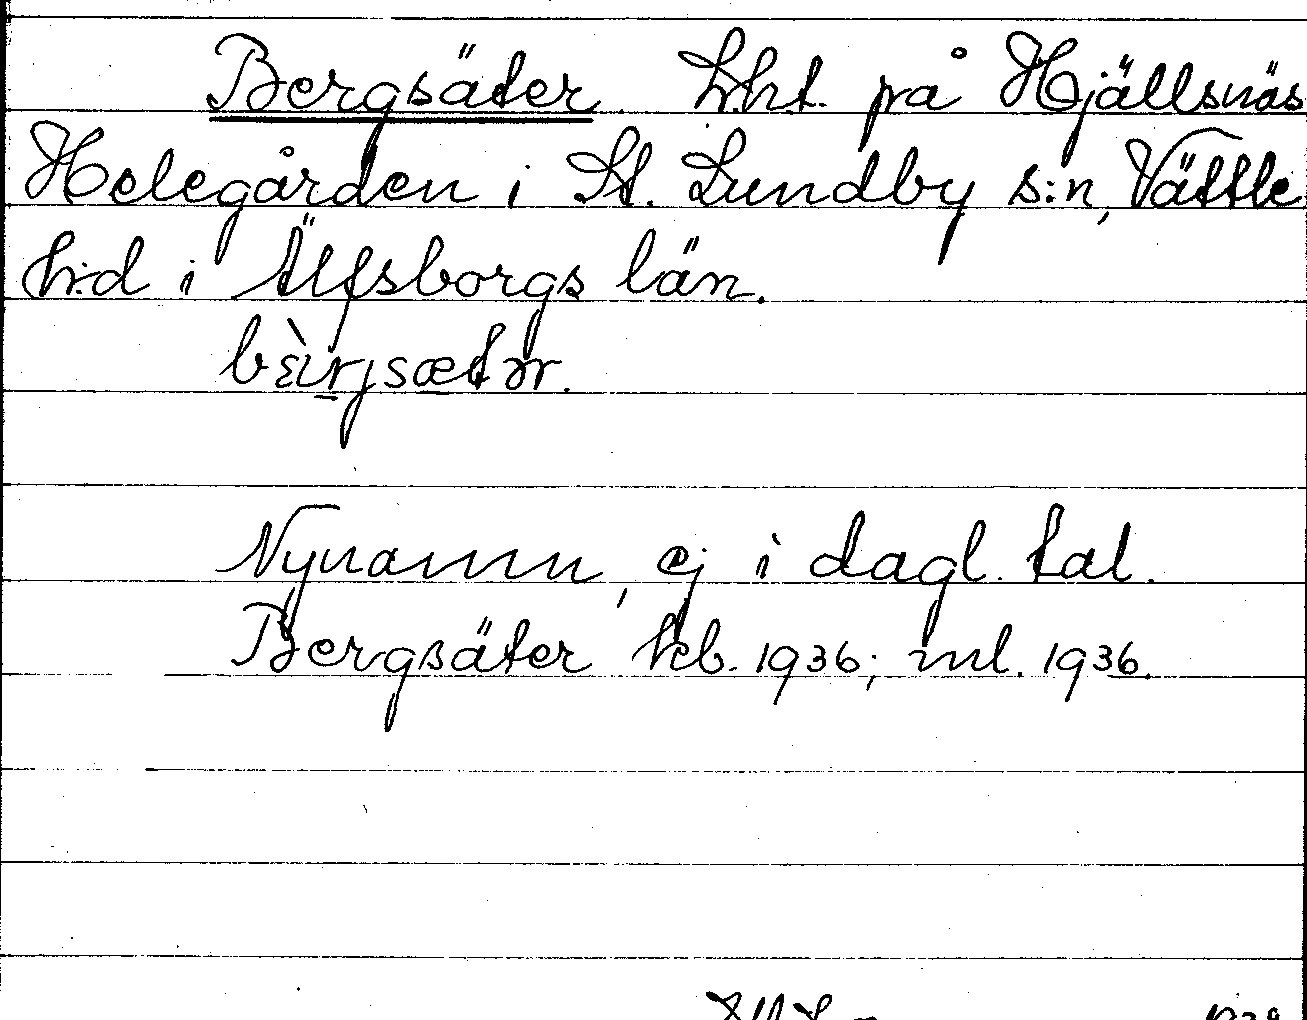 Bergsäter. Lht. på Hjällsnäs
Helegården i St. Lundby s:n, Vättle
h:d i Älfsborgs län.
bɛ̀ırjsætər.
Nynamn, ej i dagl. tal.
Bergsäter kb. 1936; ml. 1936.